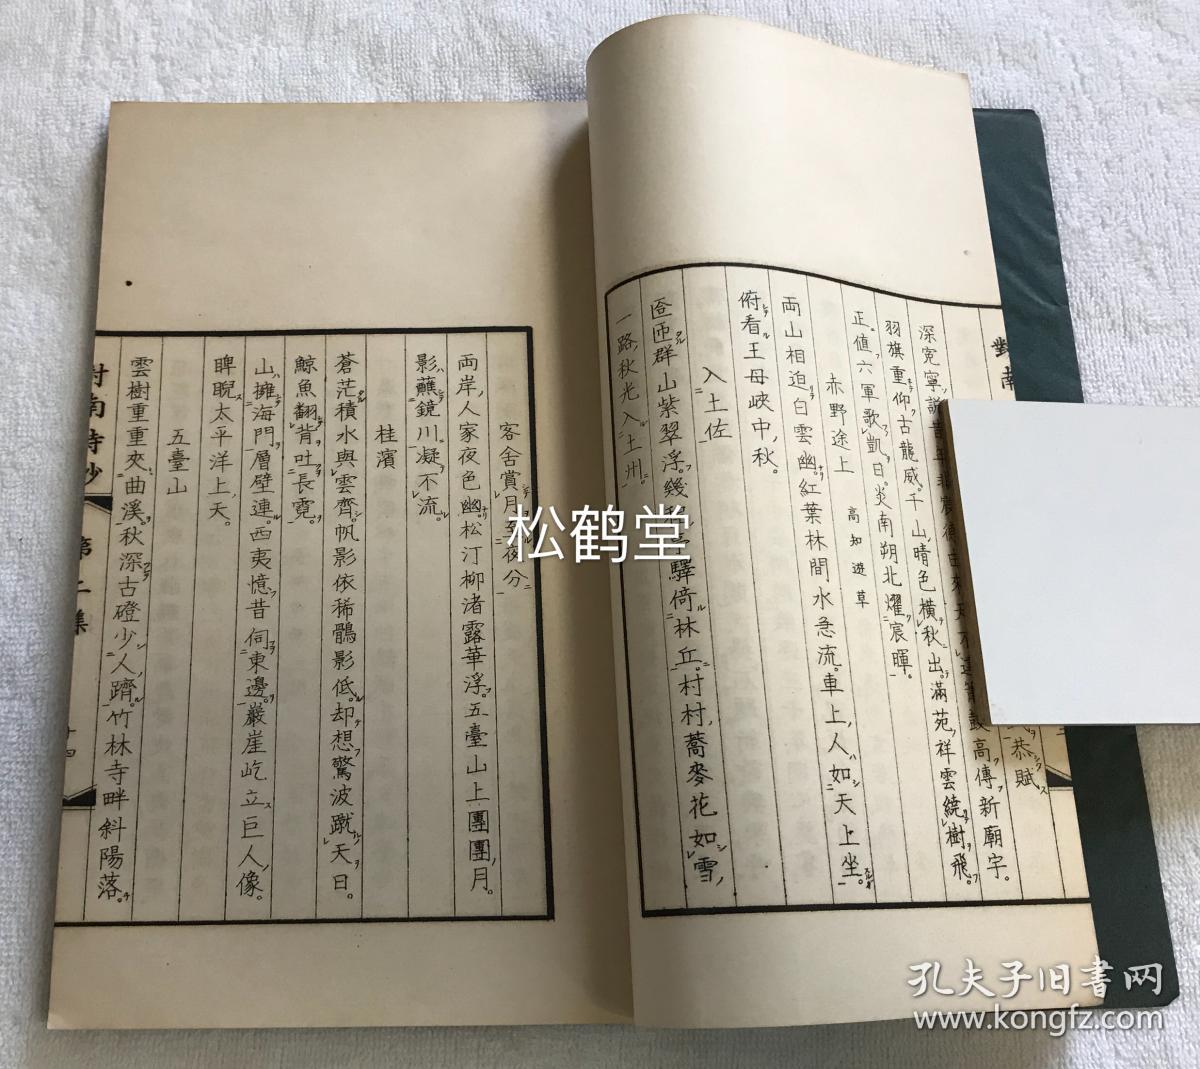 對南
恭賦
高傳新廟宇。
羽旗重仰古龍威。千山晴色橫秋出。滿苑祥雲繞樹飛。
正值六軍歌凱日。炎南朔北燿宸暉。
赤野途上 高知遊草
両山相迫白雲幽。紅葉林間水急流。車上人如天上坐。
俯看王母峽中秋。
入土佐
匼匝群山紫翠浮。幾 亭驛倚林丘。村村蕎麥花如雪。
一路秋光入土州。
客舍賞月 夜分
両岸人家夜色幽。松汀柳渚露華浮。五臺山上團團月。
影蘸鏡川凝不流。
桂濱
蒼茫積水與雲齊。帆影依稀鶻影低。却想驚波蹴天日。
鯨魚翻背吐長霓。
山擁海門層壁連。西夷憶昔伺東邊。巖崖屹立巨人像。
睥睨太平洋上天。
五臺山
雲樹重重夾曲溪。秋深古磴少人躋。竹林寺畔斜陽落。
對南詩鈔 第二集 十四
松鹤堂
孔夫子旧书网
www.kongfz.com